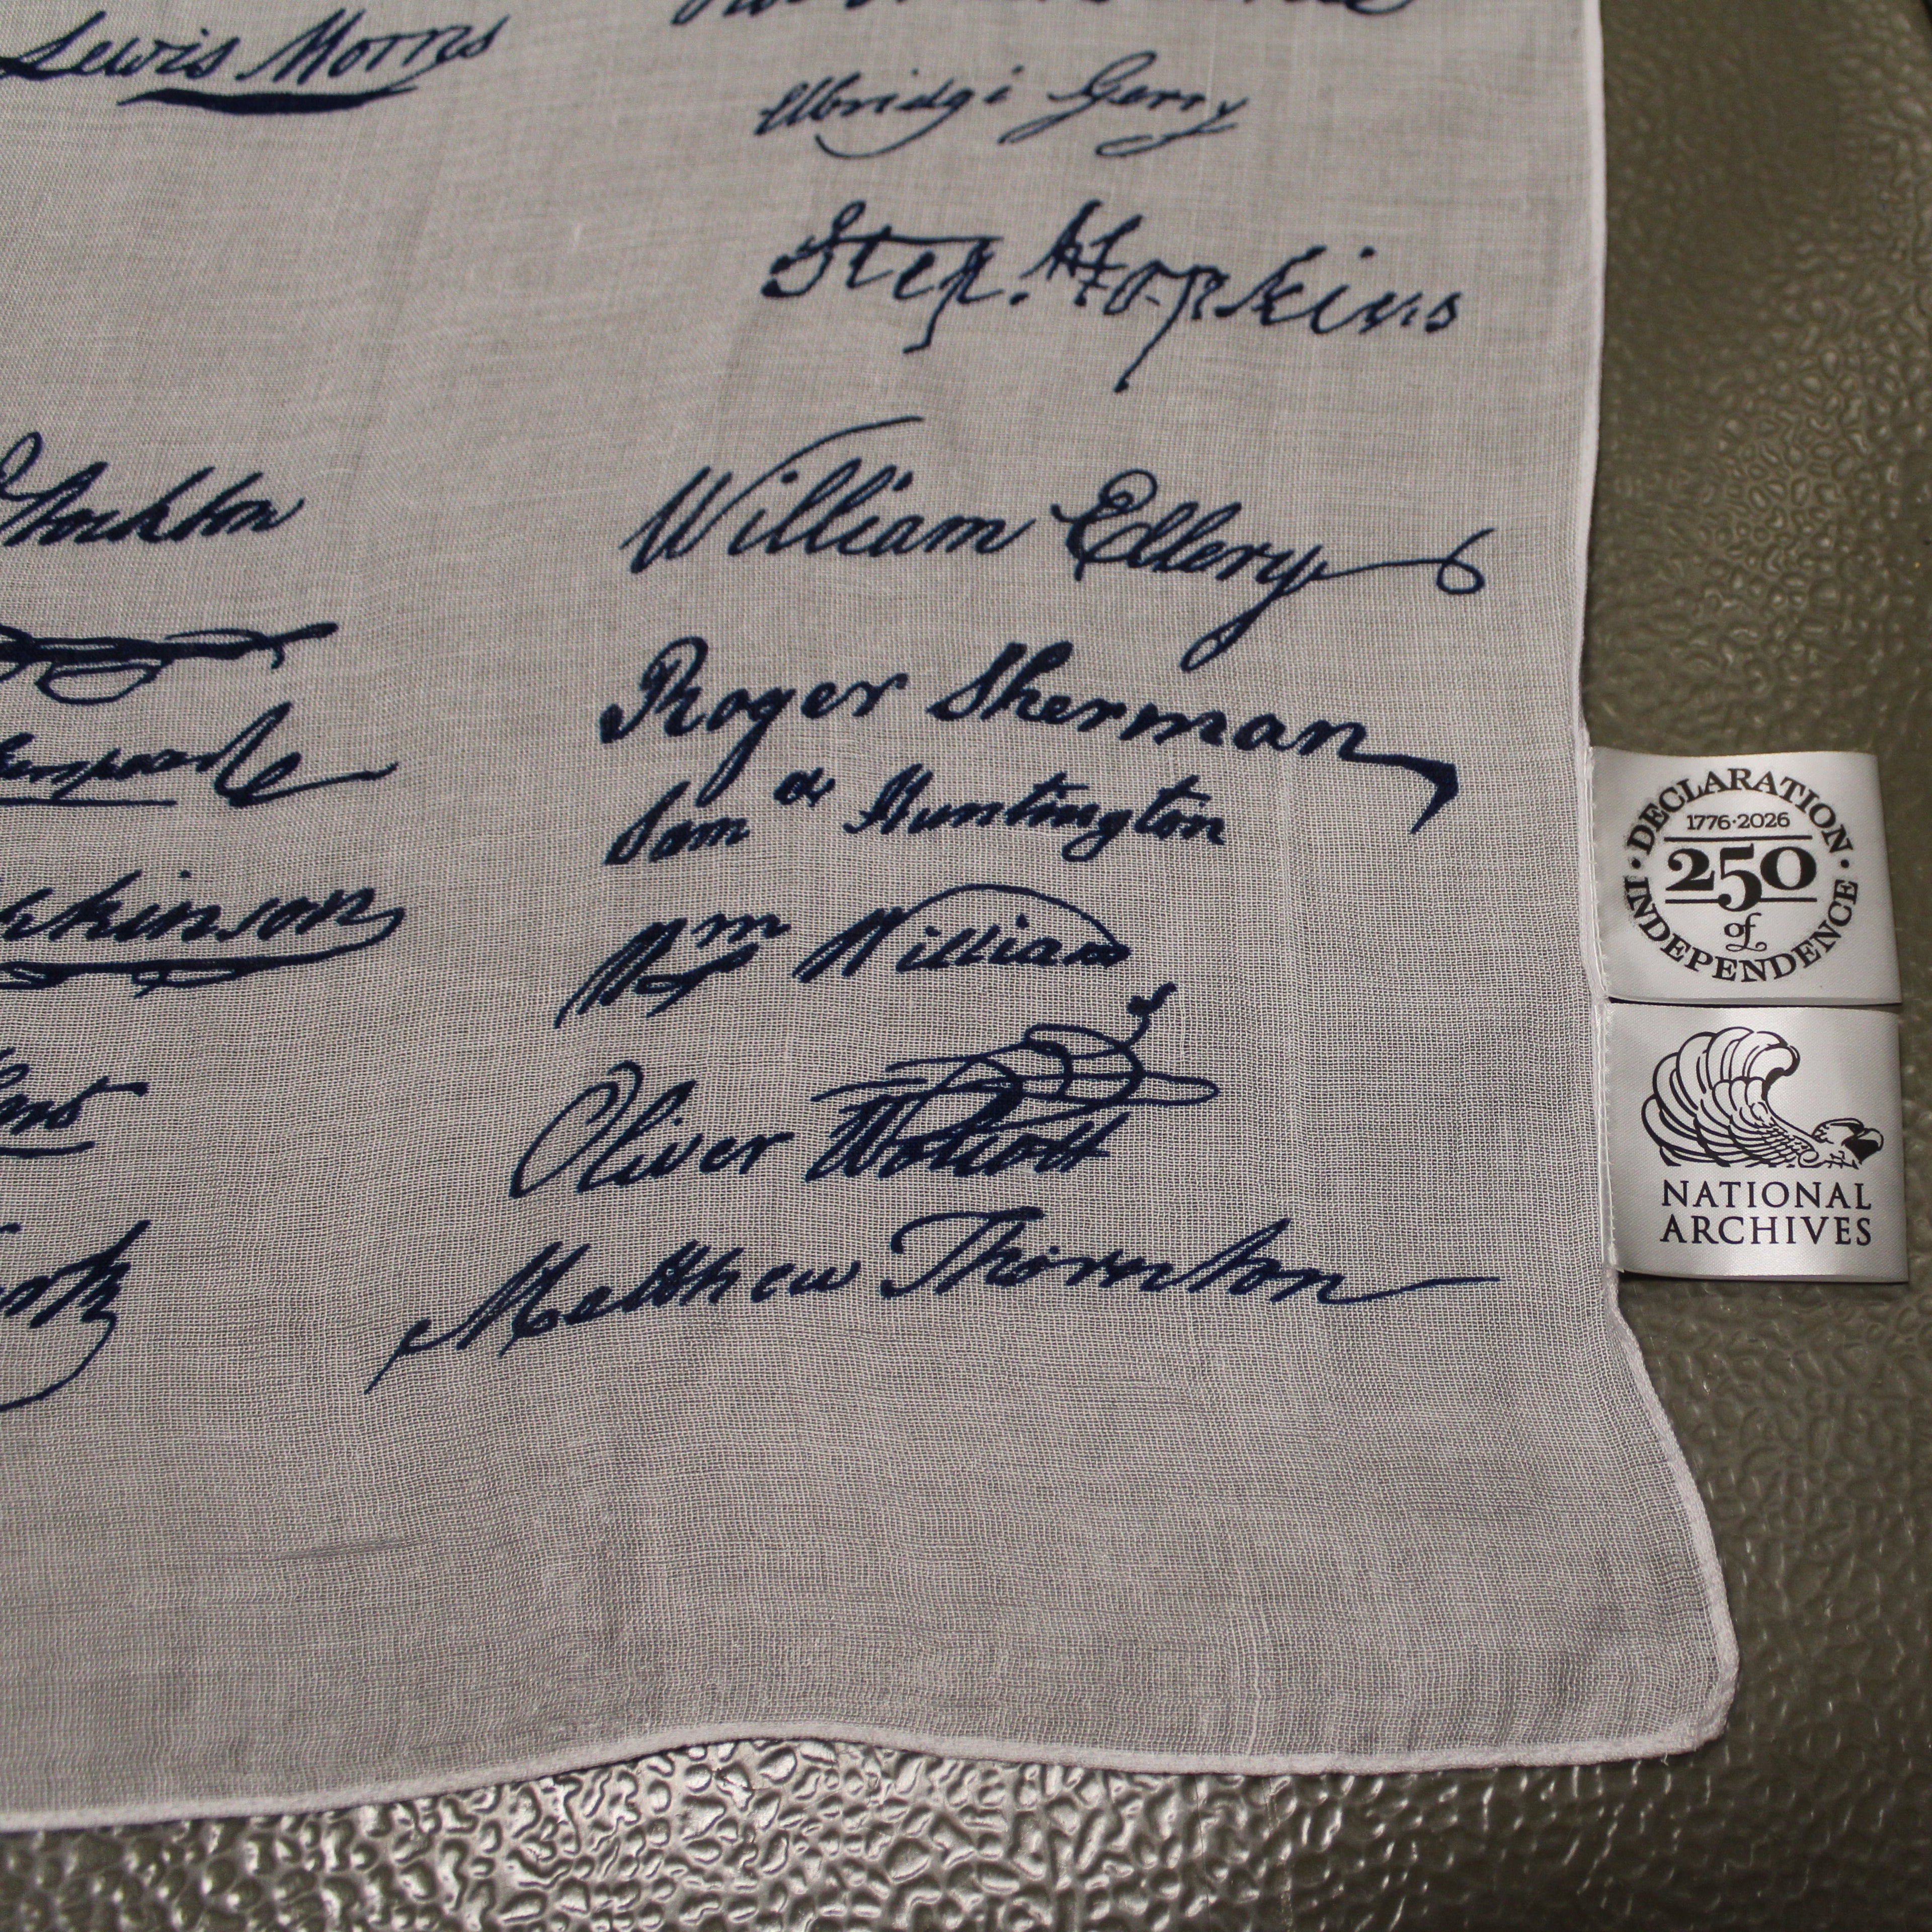 Lewis Morris
Elbridge Gerry
Step. Hopkins
Stockton
William Ellery
Roger Sherman
Samel Huntington
Wm Williams
Oliver Wolcott
Matthew Thornton
DECLARATION
1776·2026
250
of
· INDEPENDENCE ·
NATIONAL
ARCHIVES